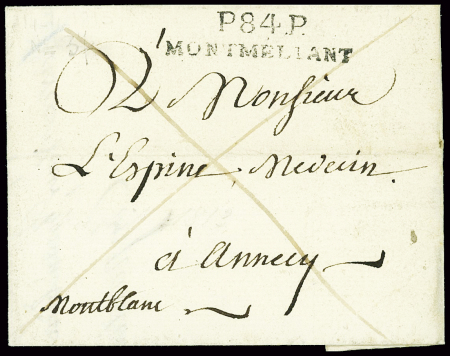 P.84.P.
MONTMELIANT
A Monsieur
L'Espine, Medecin.
à Annecy
Montblanc